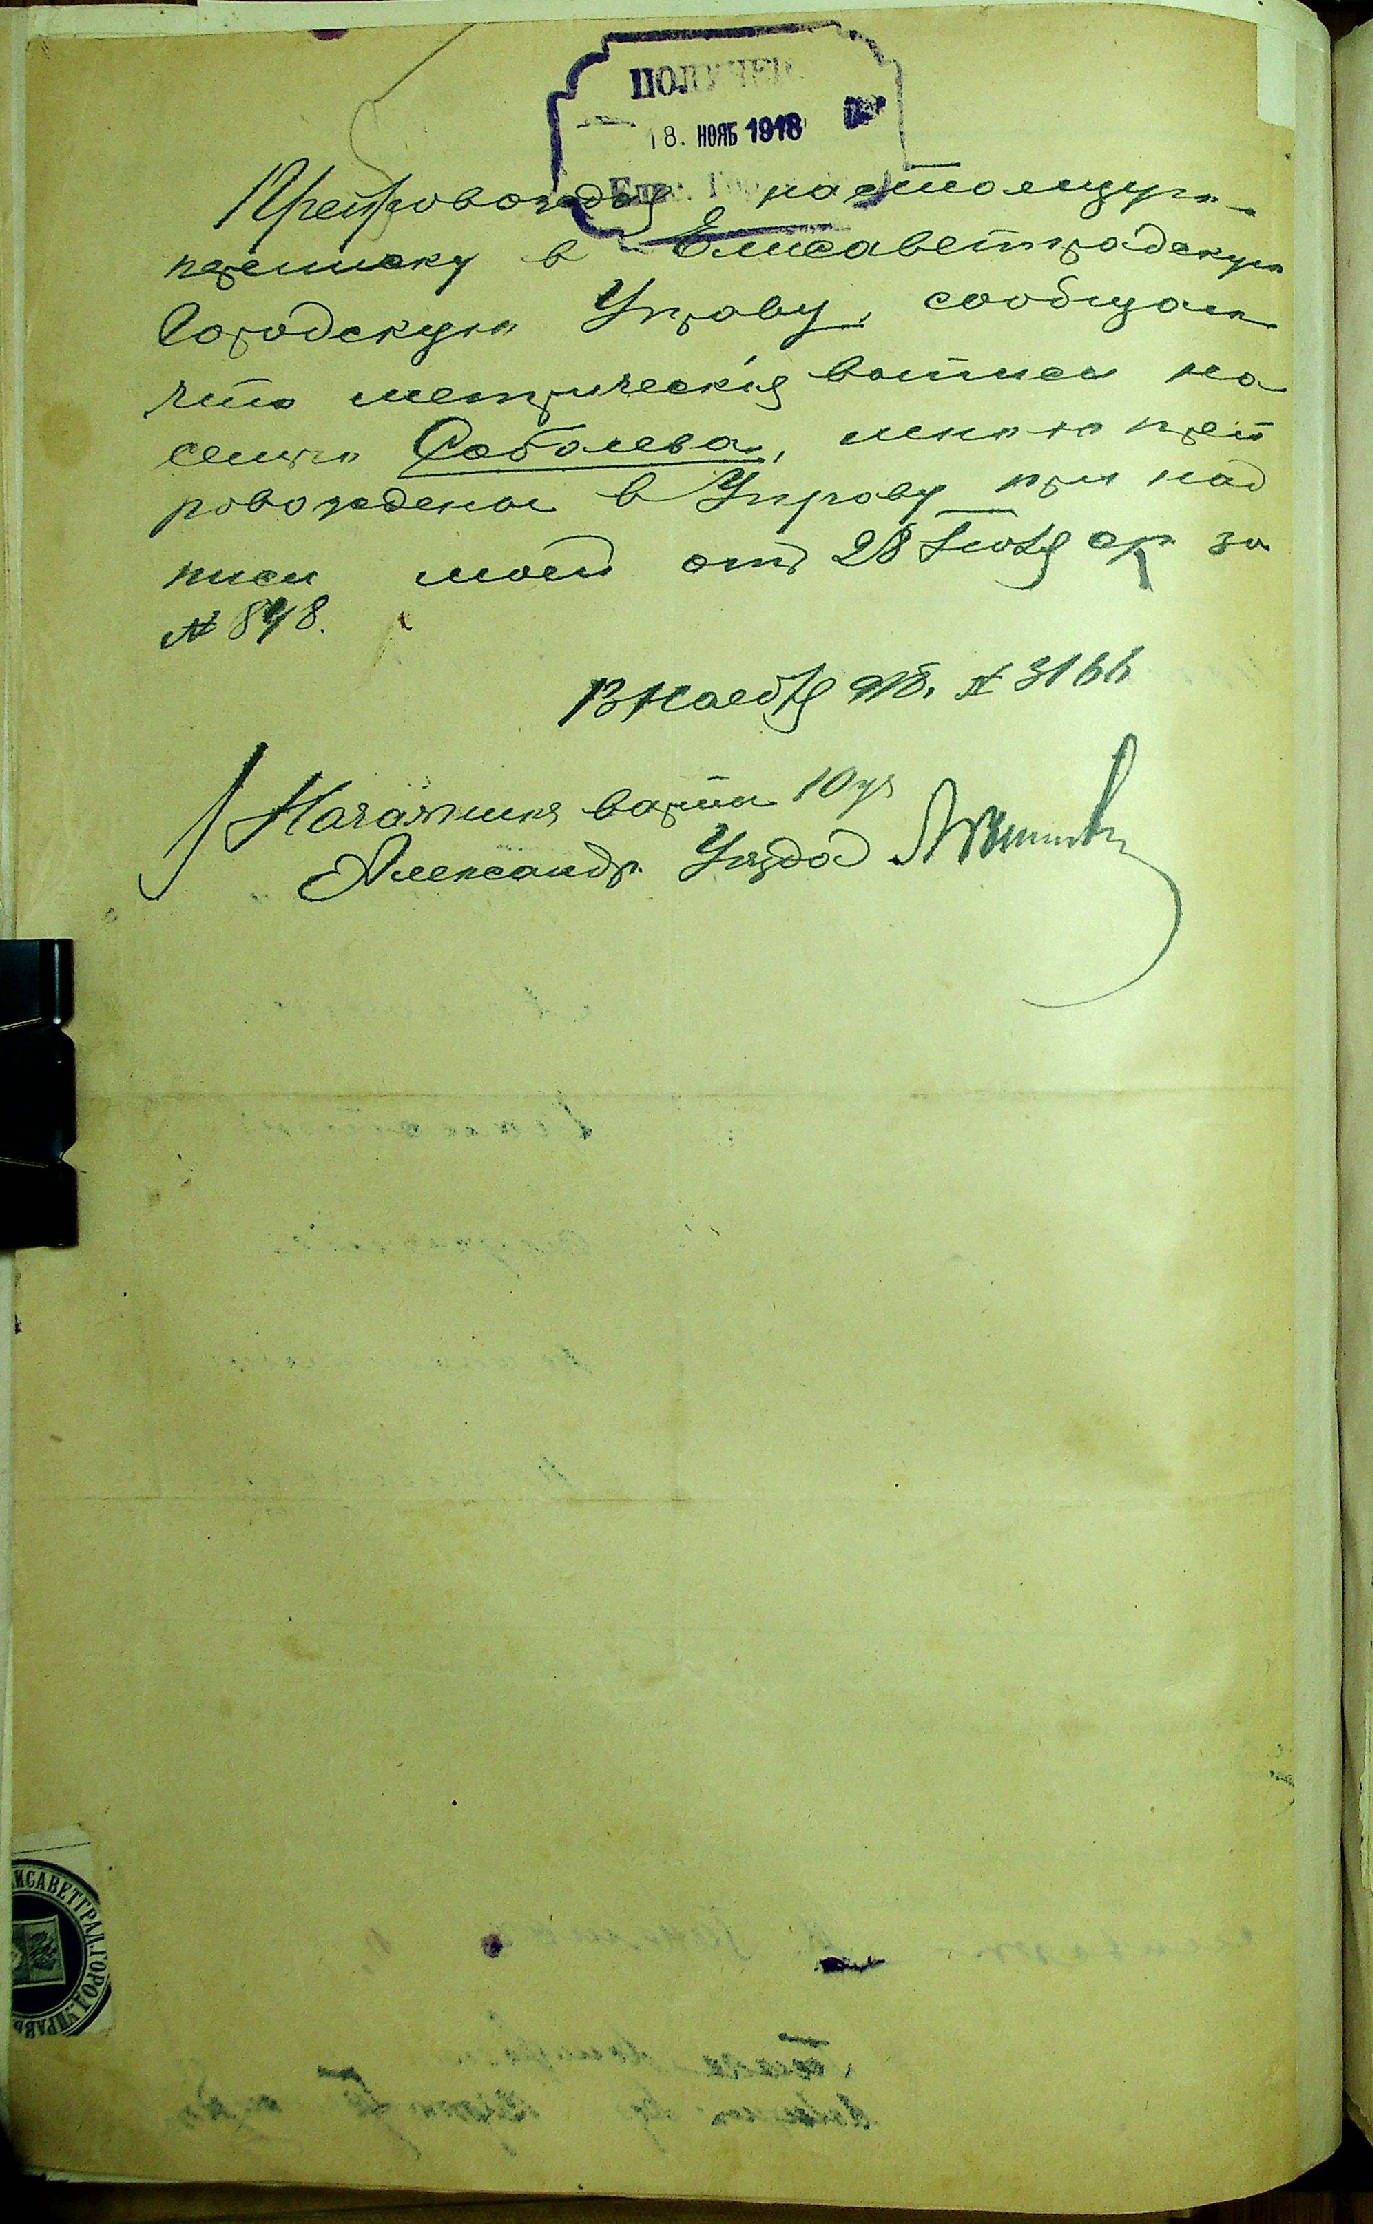 ПОЛУЧЕН
18. НОЯБ 1918
Елис. Гор
Препровождая настоящую
переписку в Елисаветградскую
Городскую Управу, сообщаю
что метрическия выписи на
семью Соболева, мною преп
ровождены в Управу при над
писи моей от 28 Июля с.г. за
№ 848.
13 Ноября 918. № 3166
Начальник варты 10 уч
Александр. Уезда
ИСАВЕТГРАД. ГОРОД. УПРАВ